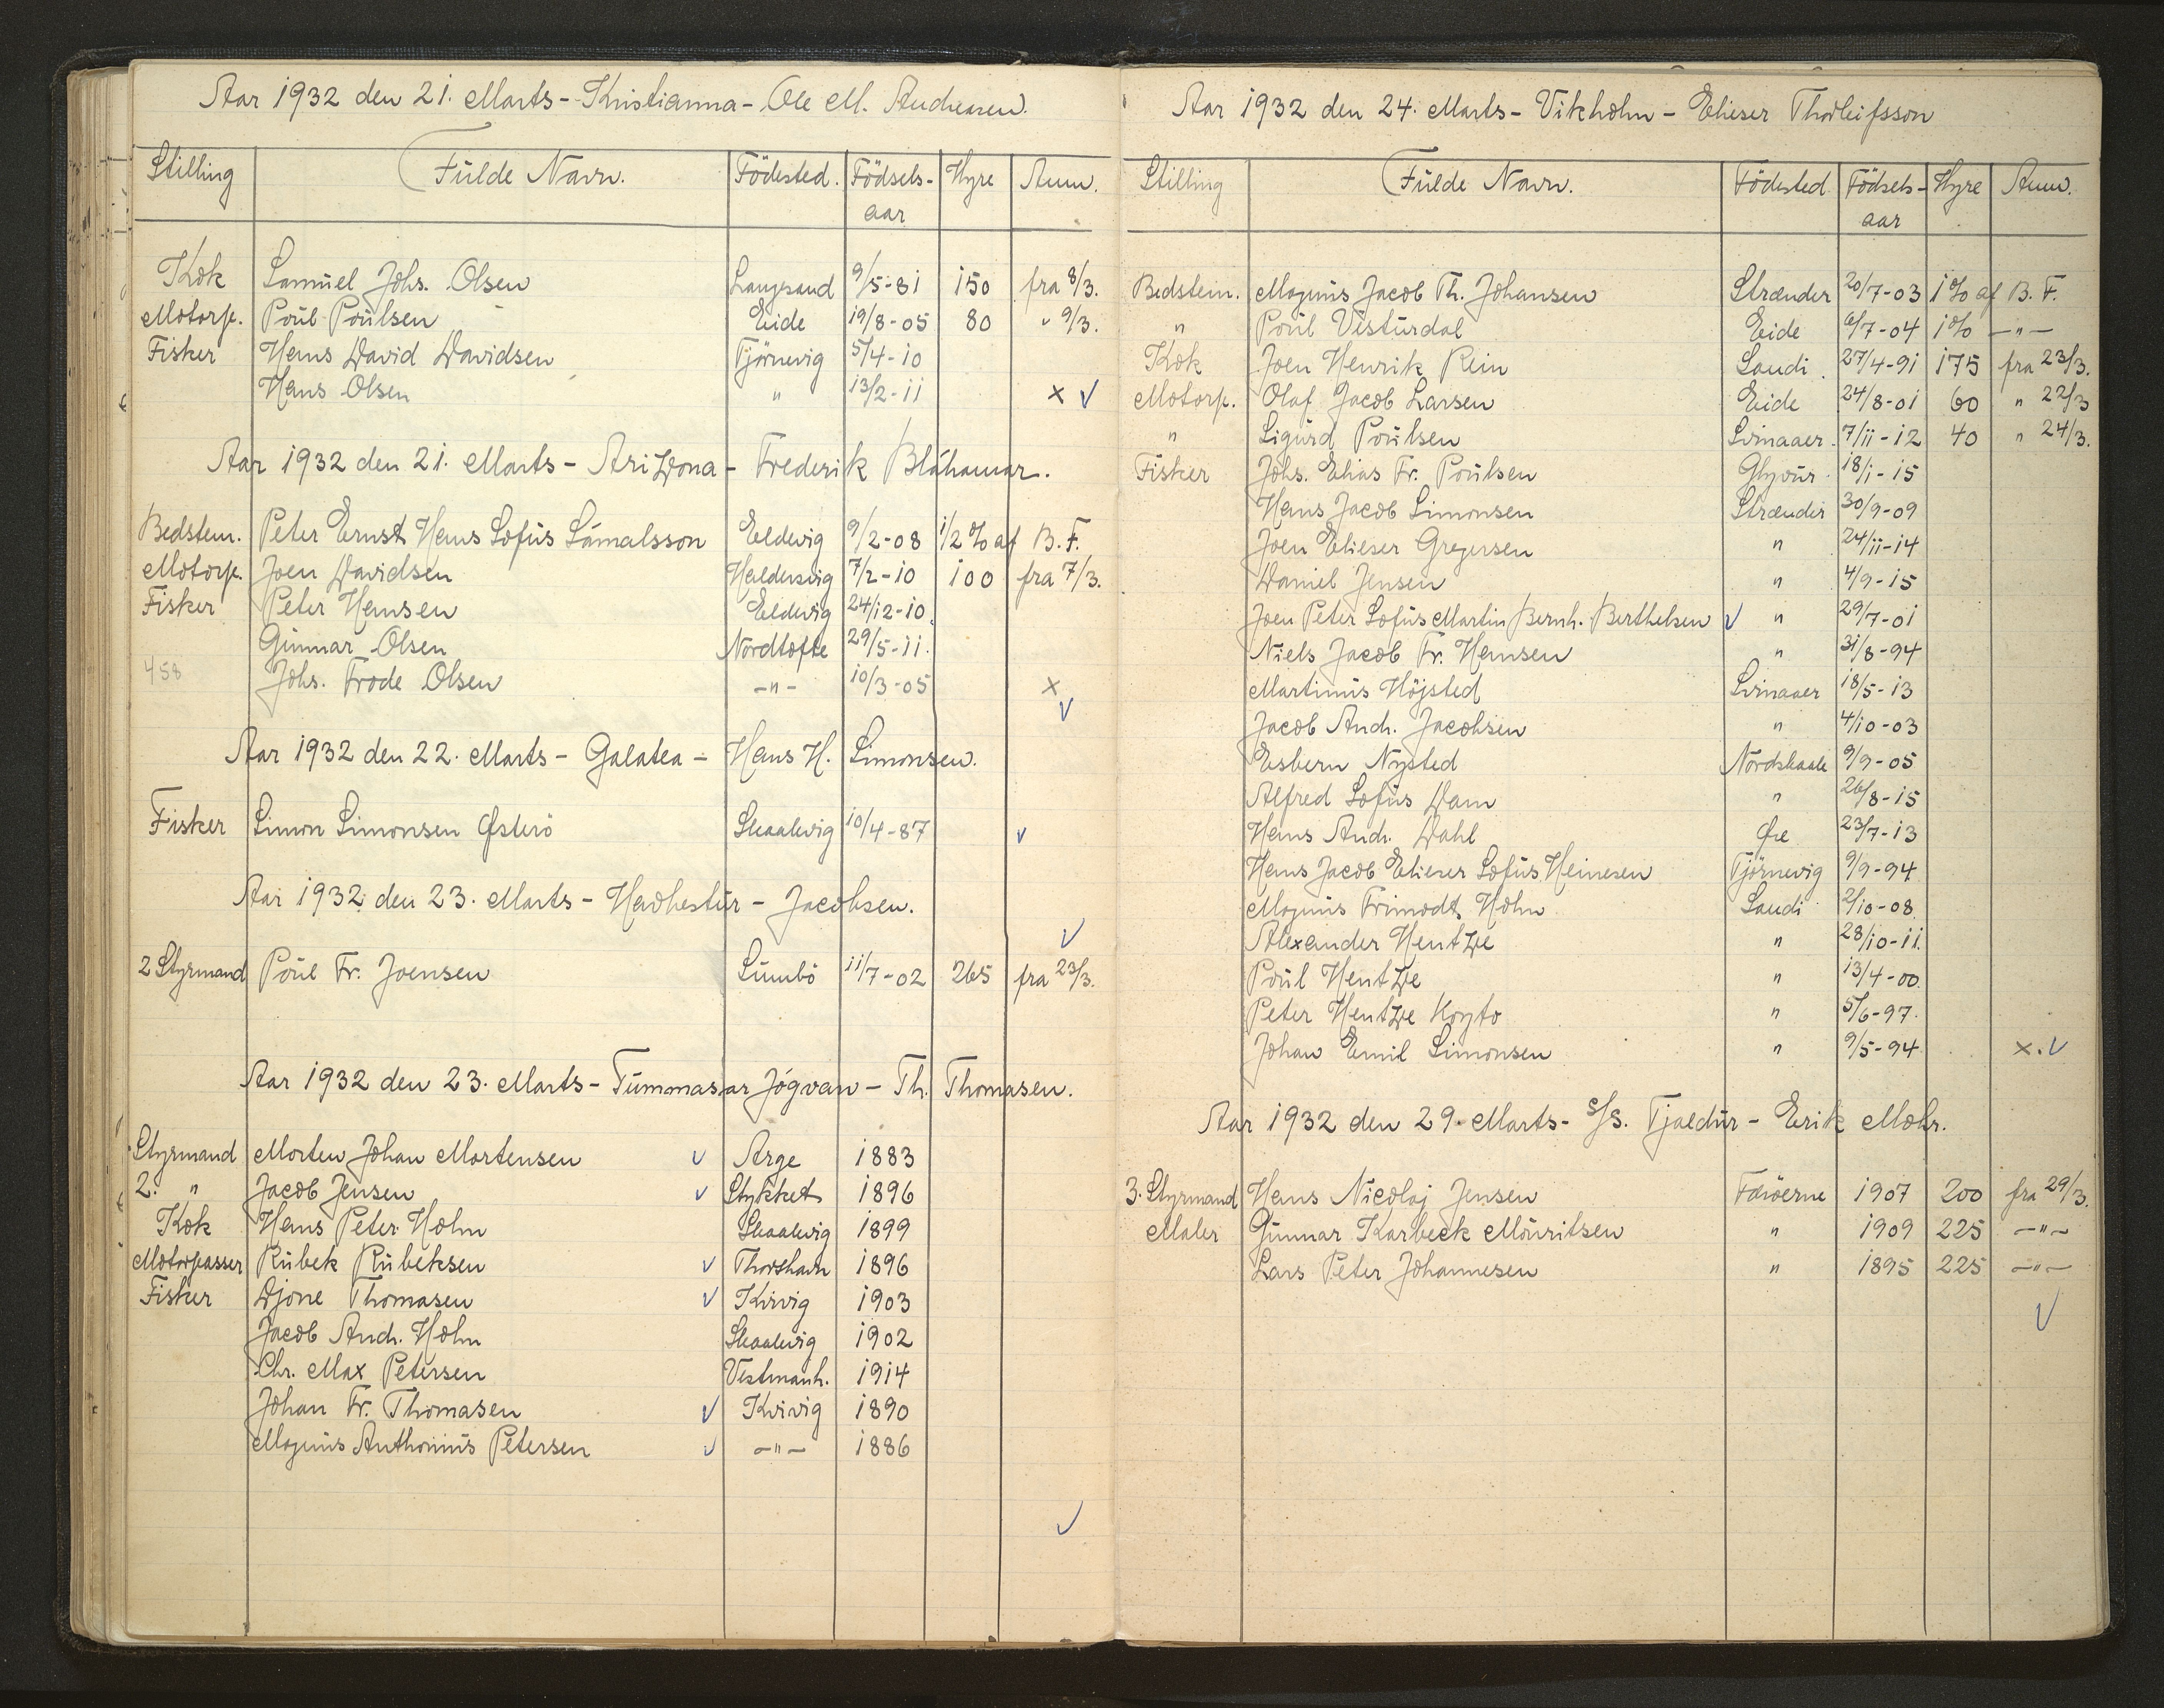 Aar 1932 den 21. Marts - Kristianna - Ole M. Andreasen.
Stilling Fülde Navn. Födested. Födsels-aar Hyre Anm.
Kok Samüel Johs. Olsen Langesand 9/5-81 150 fra 8/3.
Motorp. Poül Poülsen Eide 19/8-05 80 " 9/3.
Fisker Hans David Davidsen Tjörnevig 5/4-10
Hans Olsen " 13/2-11 x ✓
Aar 1932 den 21. Marts - Arizona - Frederik Bláhamar.
Bedstem. Peter Ernst Hans Sofüs Sámalsson Eldevig 9/2-08 1/2 % af B. F.
Motorp. Joen Davidsen Haldersvig 7/2-10 100 fra 7/3.
Fisker Peter Hansen Eldevig 24/12-10.
Günnar Olsen Nordtofte 29/5-11.
458 Johs. Frode Olsen -"- 10/3-05 x
✓
Aar 1932 den 22. Marts - Galatea - Hans H. Simonsen.
Fisker Simon Simonsen Østerö Skaalevig 10/4-87 ✓
Aar 1932 den 23. Marts - Havhestür - Jacobsen.
✓
2 Styrmand Poül Fr. Joensen Sümbö 11/7-02 265 fra 23/3.
Aar 1932 den 23. Marts - Tümmasar Jógvan - Th. Thomasen.
Styrmand Morten Johan Mortensen ✓ Arge 1883
2. " Jacob Jensen ✓ Stykket 1896
Kok Hans Peter Holm Skaalevig 1899
Motorpasser Rübek Rübeksen ✓ Thorshavn 1896
Fisker Djone Thomasen ✓ Kvivig 1903
Jacob Andr. Holm Skaalevig 1902
Chr. Max Petersen Vestmanh. 1914
Johan Fr. Thomasen ✓ Kvivig 1890
Magnüs Anthoniüs Petersen ✓ -"- 1886
✓
Aar 1932 den 24. Marts - Vikholm - Elieser Thorleifsson
Stilling Fülde Navn. Födested Födsels-aar Hyre Anm.
Bedstem. Magnüs Jacob Th. Johansen Strænder 20/7-03 1% af B. F.
" Poül Vestürdal Eide 6/7-04 1% -"-
Kok Joen Henrik Rein Sandi 27/4-91 175 fra 23/3.
Motorp. Olaf Jacob Larsen Eide 24/8-01 60 " 22/3
" Sigürd Poülsen Svinaaer 7/11-12 40 " 24/3.
Fisker Johs. Elias Fr. Poülsen Glyvür 18/1-15
Hans Jacob Simonsen Strænder 30/9-09
Joen Elieser Gregersen " 24/11-14
Daniel Jensen " 4/9-15
Joen Peter Sofüs Martin Bernh. Berthelsen ✓ " 29/7-01
Niels Jacob Fr. Hansen " 31/8-94
Martinüs Höjsted Svinaaer 18/5-13
Jacob Andr. Jacobsen " 4/10-03
Esbern Nysted Nordskaale 9/9-05
Alfred Sofüs Dam " 26/8-15
Hans Andr. Dahl Øre 23/7-13
Hans Jacob Elieser Sofüs Heinesen Tjörnevig 9/9-94
Magnüs Trimodt Holm Sandi 2/10-08
Alexander Hentze " 28/10-11.
Poül Hentze " 13/4-00.
Peter Hentze " 5/6-97.
Johan Emil Simonsen " 9/5-94 x. ✓
Aar 1932 den 29. Marts - S/S. Tjaldür - Erik Mohr.
3. Styrmand Hans Nicolaj Jensen Færöerne 1907 200 fra 29/3.
Maler Günnar Karbeck Moüritsen " 1909 225 -"-
Lars Peter Johannesen " 1895 225 -"-
✓